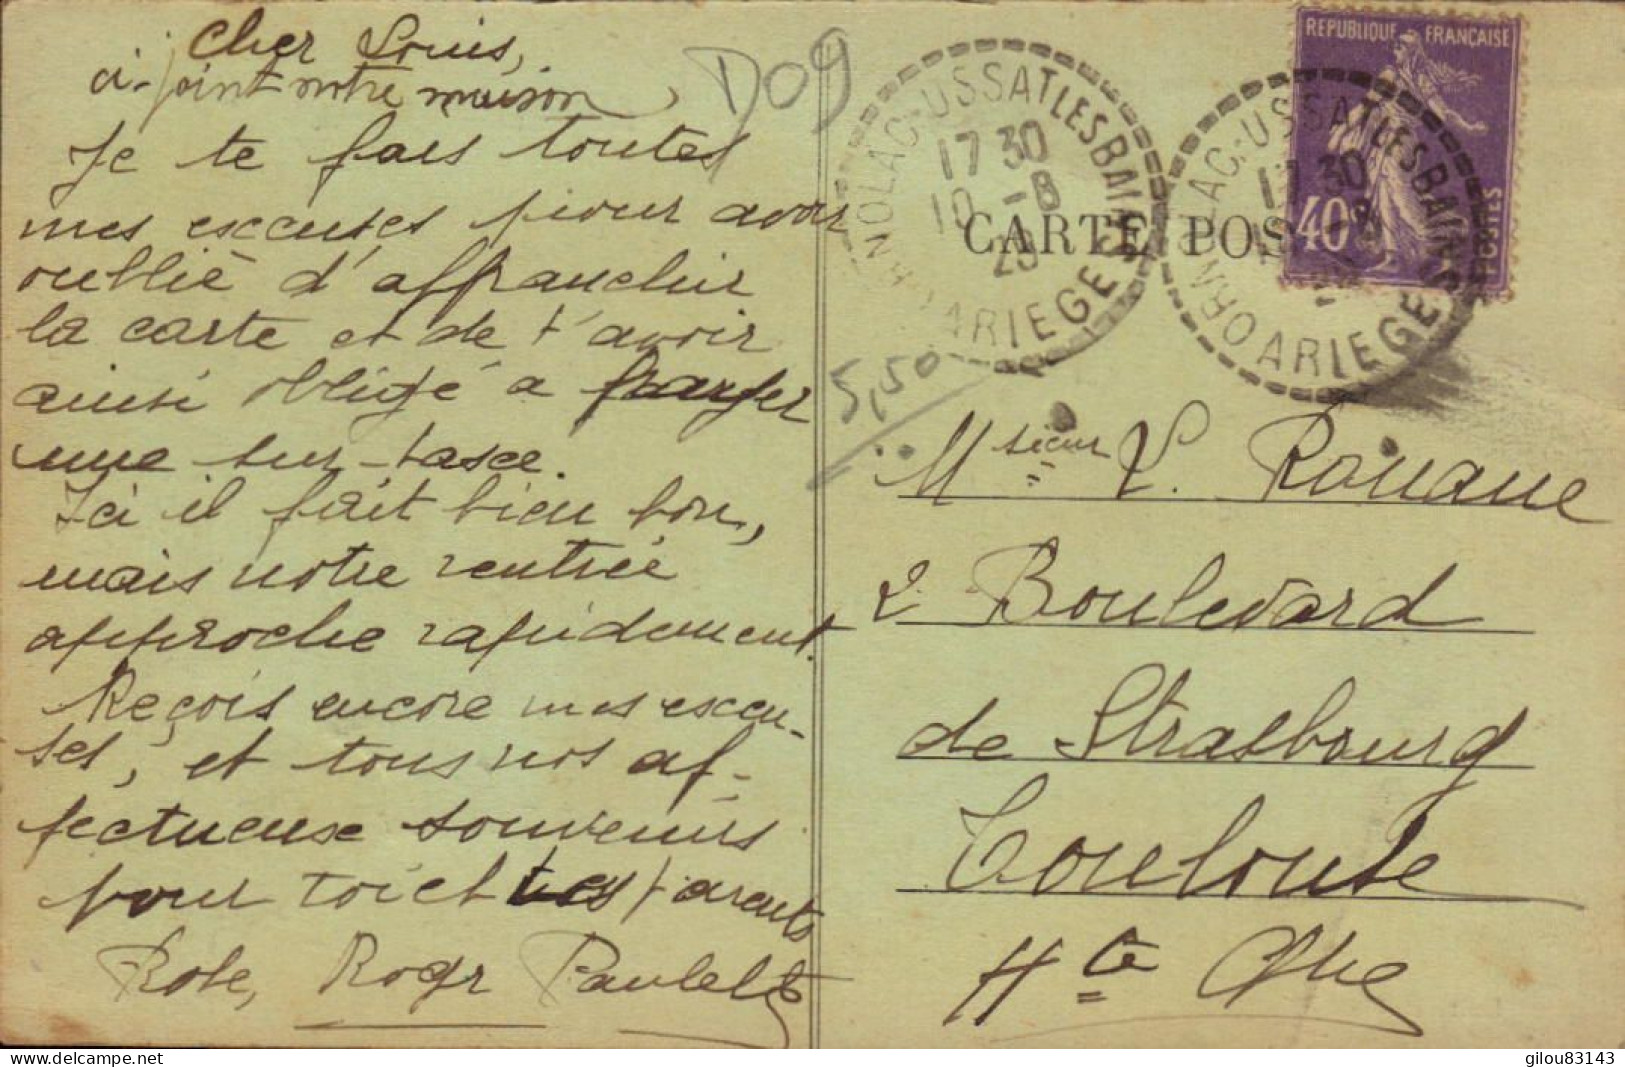 Cher Louis,
ci-joint notre maison
Je te fais toutes
mes excuses pour avoir
oublié d'affranchir
la carte et de t'avoir
ainsi obligé a payer
une sur-taxe.
Ici il fait bien bon,
mais notre rentrée
approche rapidement.
Reçois encore mes excu-
ses, et tous nos af-
fectueuse souvenirs
pour toi et tes parents
Rose, Roger Paulette
D09
5,50
ORNOLAC-USSATLESBAINS
17 30
10 -8
29
ARIEGE
CARTE POS
ORNOLAC-USSATLESBAINS
17 30
ARIEGE
REPUBLIQUE FRANÇAISE
40c
POSTES
Msieur L. Rouane
2 Boulevard
de Strasbourg
Toulouse
Hte Gne
www.delcampe.net
gilou83143